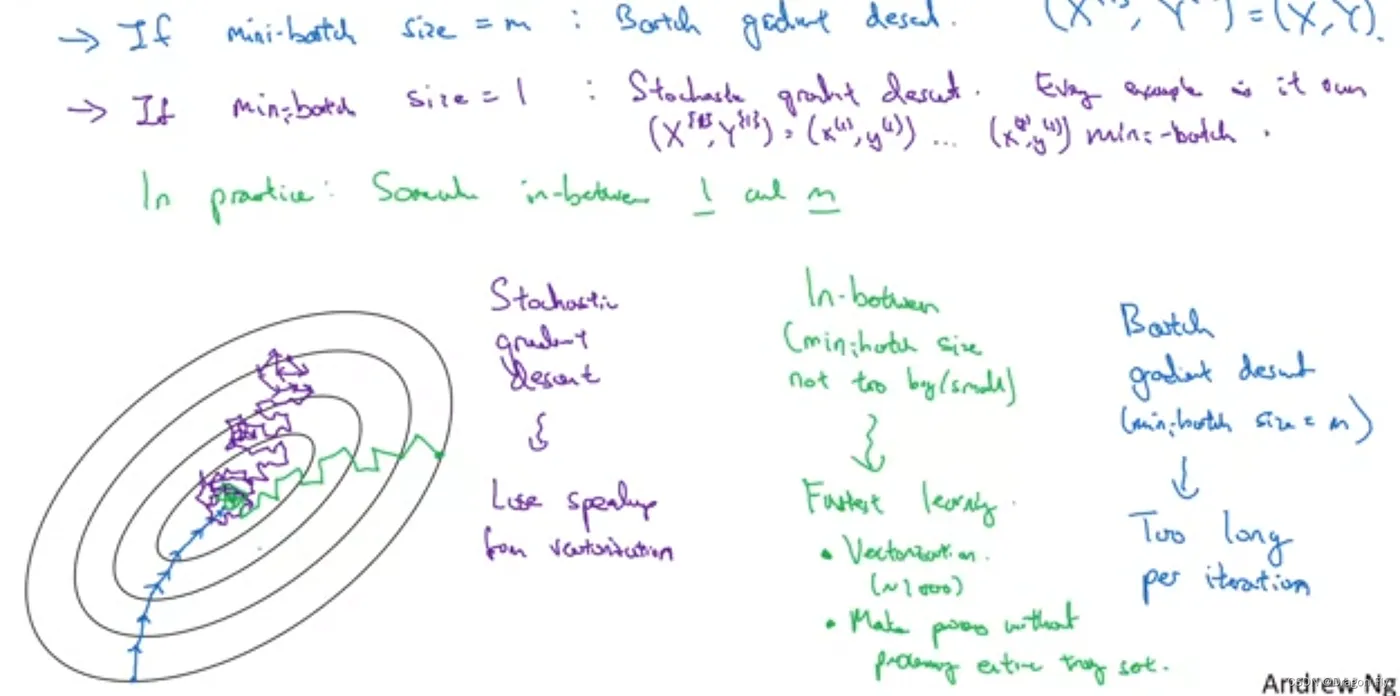 → If mini-batch size = m : Batch gradient descent. (X^{1}, Y^{1}) = (X, Y).
→ If mini-batch size = 1 : Stochastic gradient descent. Every example is it own
(X^{1}, Y^{1}) = (x^(1), y^(1)) ... (x^(2), y^(2)) mini-batch.
In practice: Somewhere in-between 1 and m
Stochastic
gradient
descent
Lose speedup
from vectorization
In-between
(mini-batch size
not too big/small)
Fastest learning.
• Vectorization.
(~1000)
• Make progress without
processing entire training set.
Batch
gradient descent
(mini-batch size = m)
Too long
per iteration
Andrew Ng